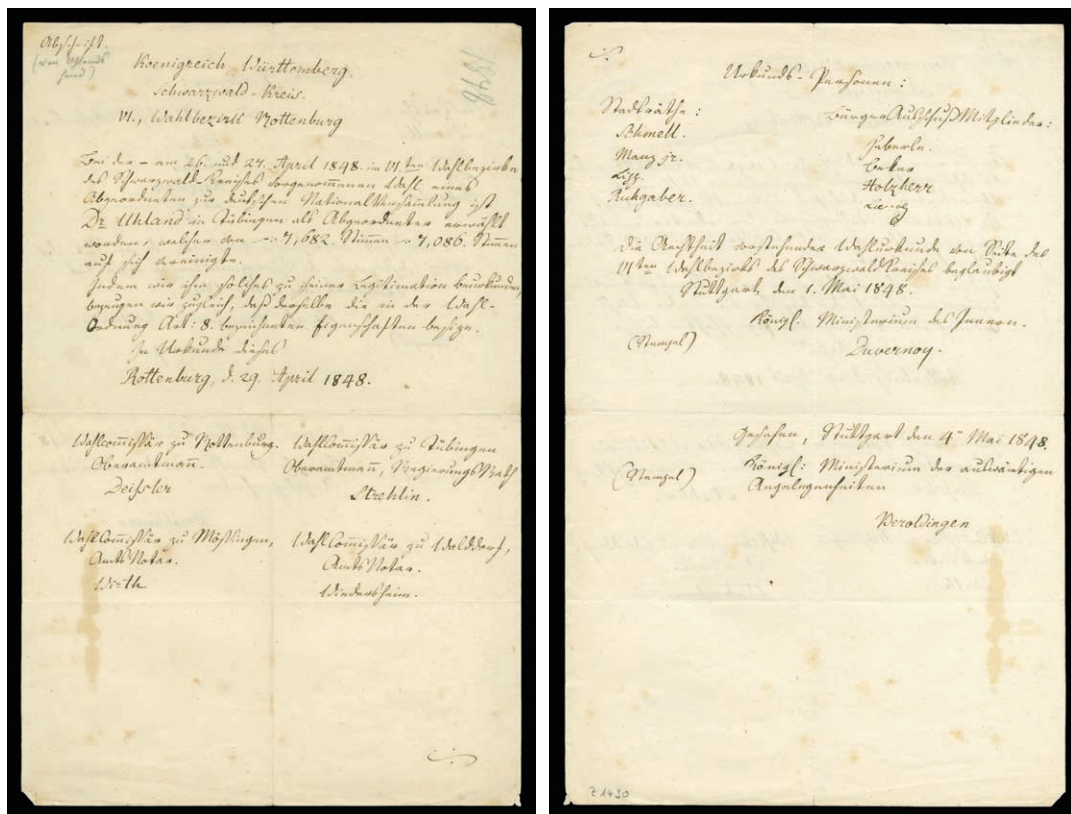 Abschrift.
(von Uhlands
Hand)
1848
Koenigreich Württemberg.
Schwarzwald-Kreis.
VI., Wahlbezirk Rottenburg
Bei der – am 26. und 27. April 1848. im VI.ten Wahlbezirke
des Schwarzwald-Kreises vorgenommenen Wahl eines
Abgeordneten zur deutschen NationalVersammlung ist
Dr. Uhland in Tübingen als Abgeordneter erwählt
worden, welcher von 7,682. Stimmen 7,086. Stimmen
auf sich vereinigte.
Indem wir ihm solches zu seiner Legitimation beurkunden,
bezeugen wir zugleich, daß derselbe die in der Wahl-
Ordnung Art: 8. bezeichneten Eigenschaften besize.
In Urkunde dieses
Rottenburg, d. 29. April 1848.
Wahlcommissär zu Rottenburg.
Oberamtmann.
Deißler
Wahlcommissär zu Tübingen
Oberamtmann, RegierungsRath
Strehlin.
WahlCommissär zu Mössingen,
AmtsNotar.
Wirth
WahlCommissär zu Walddorf,
AmtsNotar.
Wiedersheim.
Urkunds-Personen:
Stadträthe:
Schmell.
Manz jr.
Lipp.
Ruhgaber.
BürgerAusschußMitglieder:
Heberle.
Beker
Holzherr
Die Aechtheit vorstehender Wahlurkunde von Seite des
VI.ten Wahlbezirks des SchwarzwaldKreises beglaubigt
Stuttgart, den 1. Mai 1848.
Königl. Ministerium des Innern.
(Stempel)
Duvernoy.
Gesehen, Stuttgart den 4. Mai 1848.
(Stempel)
Königl: Ministerium der auswärtigen
Angelegenheiten
Beroldingen
Z 1430